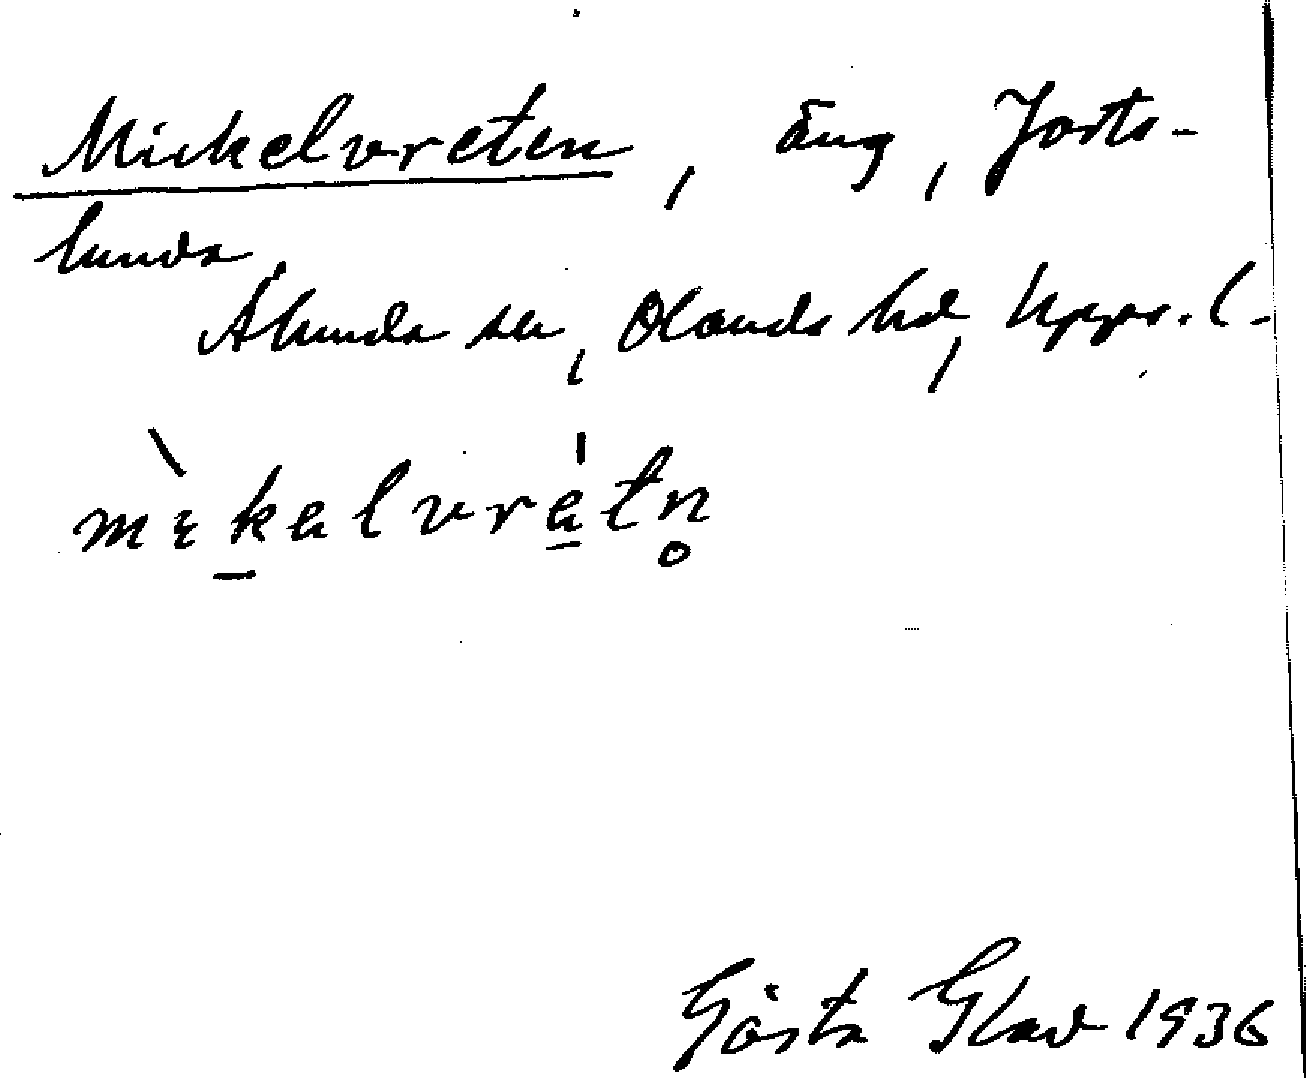 Mickelvreten, äng, Josts-
lunda
Ålunda sn, Olands hd, Upps. l.
mìkalvrétn̥
Gösta Glad 1936